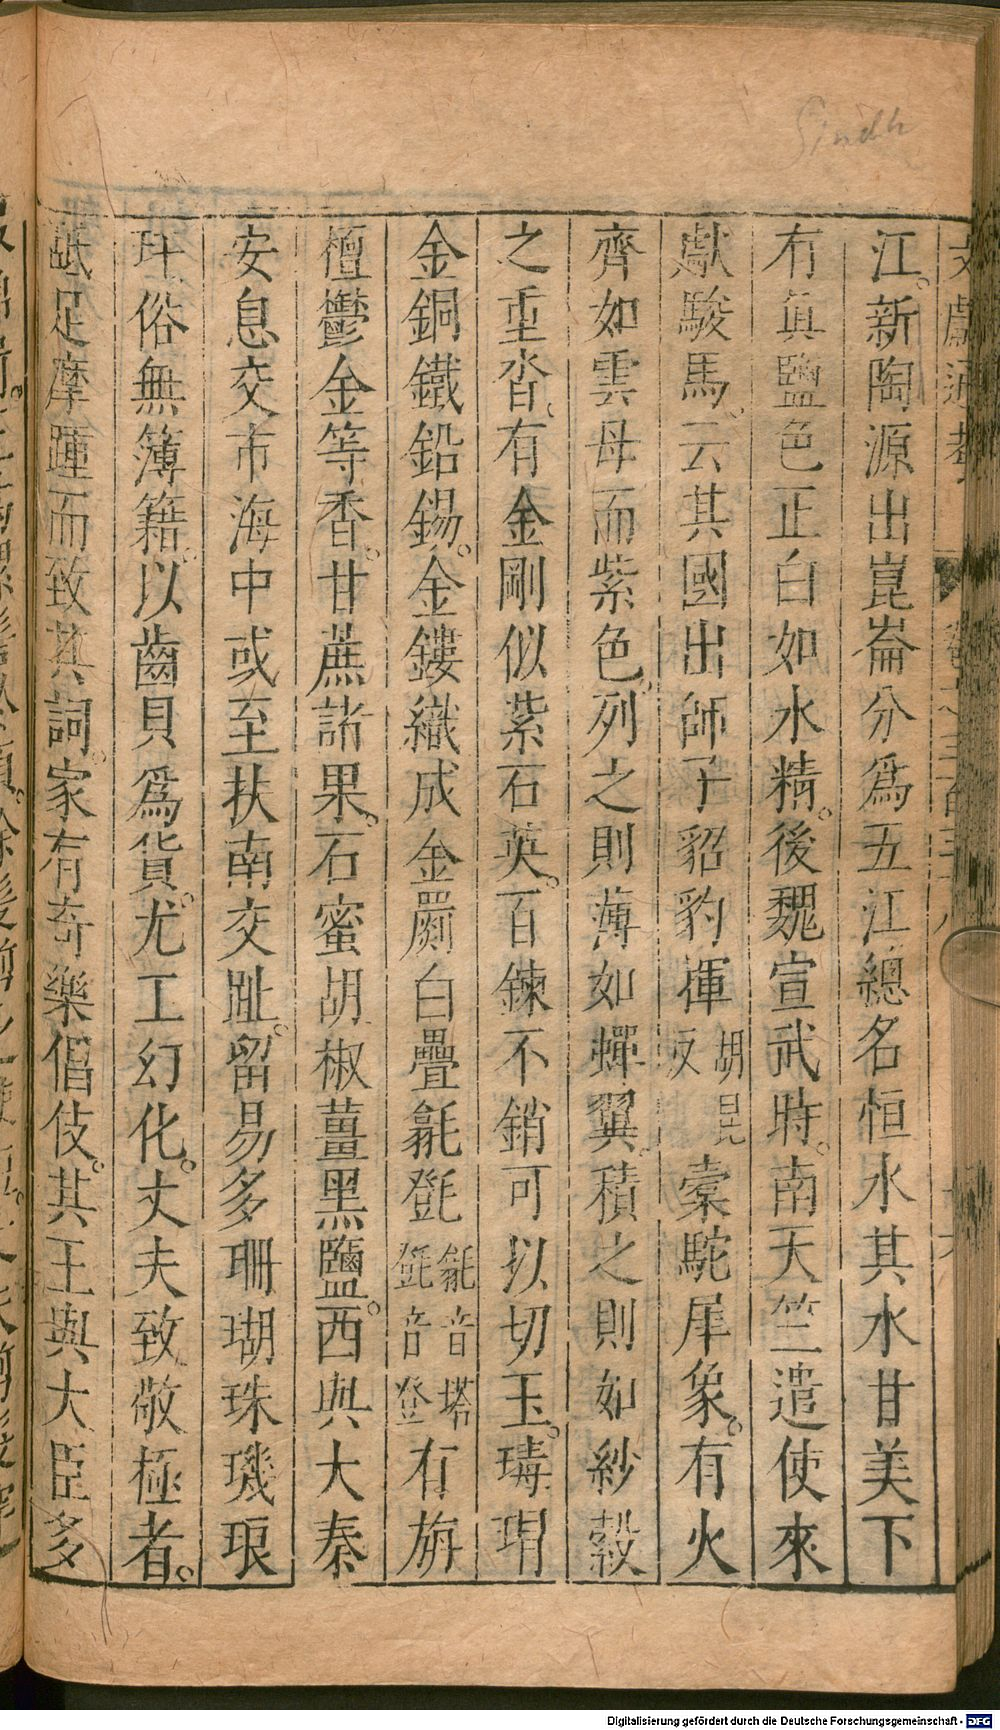 Sindh
文獻通考 卷之三百三十八
江新陶源出崑崙分爲五江總名恒水其水甘美下
有眞鹽色正白如水精後魏宣武時南天竺遣使來
獻駿馬云其國出師子貂豹㹆胡昆反槖駝犀象有火
齊如雲母而紫色列之則薄如蟬翼積之則如紗縠
之重沓有金剛似紫石英百鍊不銷可以切玉瑇瑁
金銅鐵鉛錫金鏤織成金罽白疊㲮㲪㲮音塔㲪音登有旃
檀鬱金等香甘蔗諸果石蜜胡椒薑黑鹽西與大秦
安息交市海中或至扶南交趾留易多珊瑚珠璣琅
玕俗無簿籍以齒貝爲貨尤工幻化丈夫致敬極者
䑛足摩踵而致其詞家有奇樂倡伎其王與大臣多
Digitalisierung gefördert durch die Deutsche Forschungsgemeinschaft - DFG